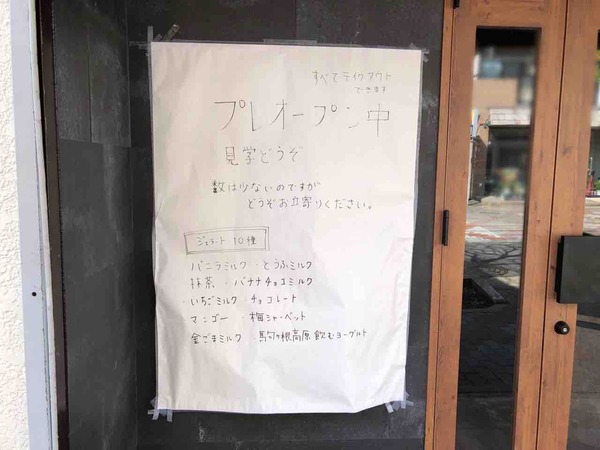 すべてテイクアウト
できます
プレオープン中
見学どうぞ
数は少ないのですが
どうぞお立寄りください。
ジェラート 10種
バニラミルク・とうふミルク
抹茶・バナナチョコミルク
いちごミルク・チョコレート
マンゴー・梅シャーベット
金ごまミルク・高原飲むヨーグルト